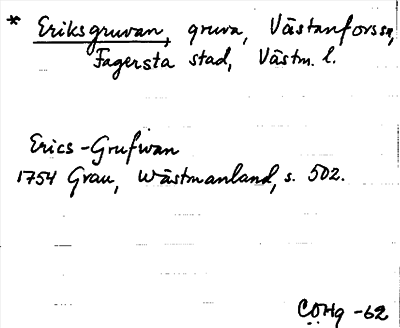 * Eriksgruvan, gruva, Västanforssn,
Fagersta stad, Västm. l.
Erics-Grufwan
1754 Grau, Wästmanland, s. 502.
CÖHg -62